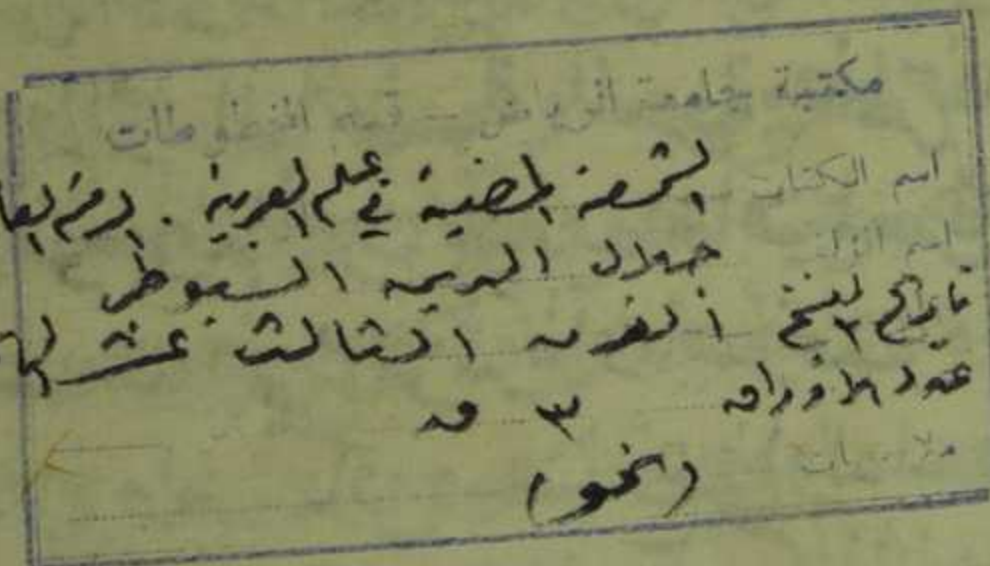 مكتبة جامعة الرياض - قسم المخطوطات
اسم الكتاب الشمعة المضية في علم العربية . الرقم العا
اسم المؤلف جلال الدين السيوطي
تاريخ النسخ القرن الثالث عشر
عدد الأوراق ٣ ق
ملاحظات (نحو)